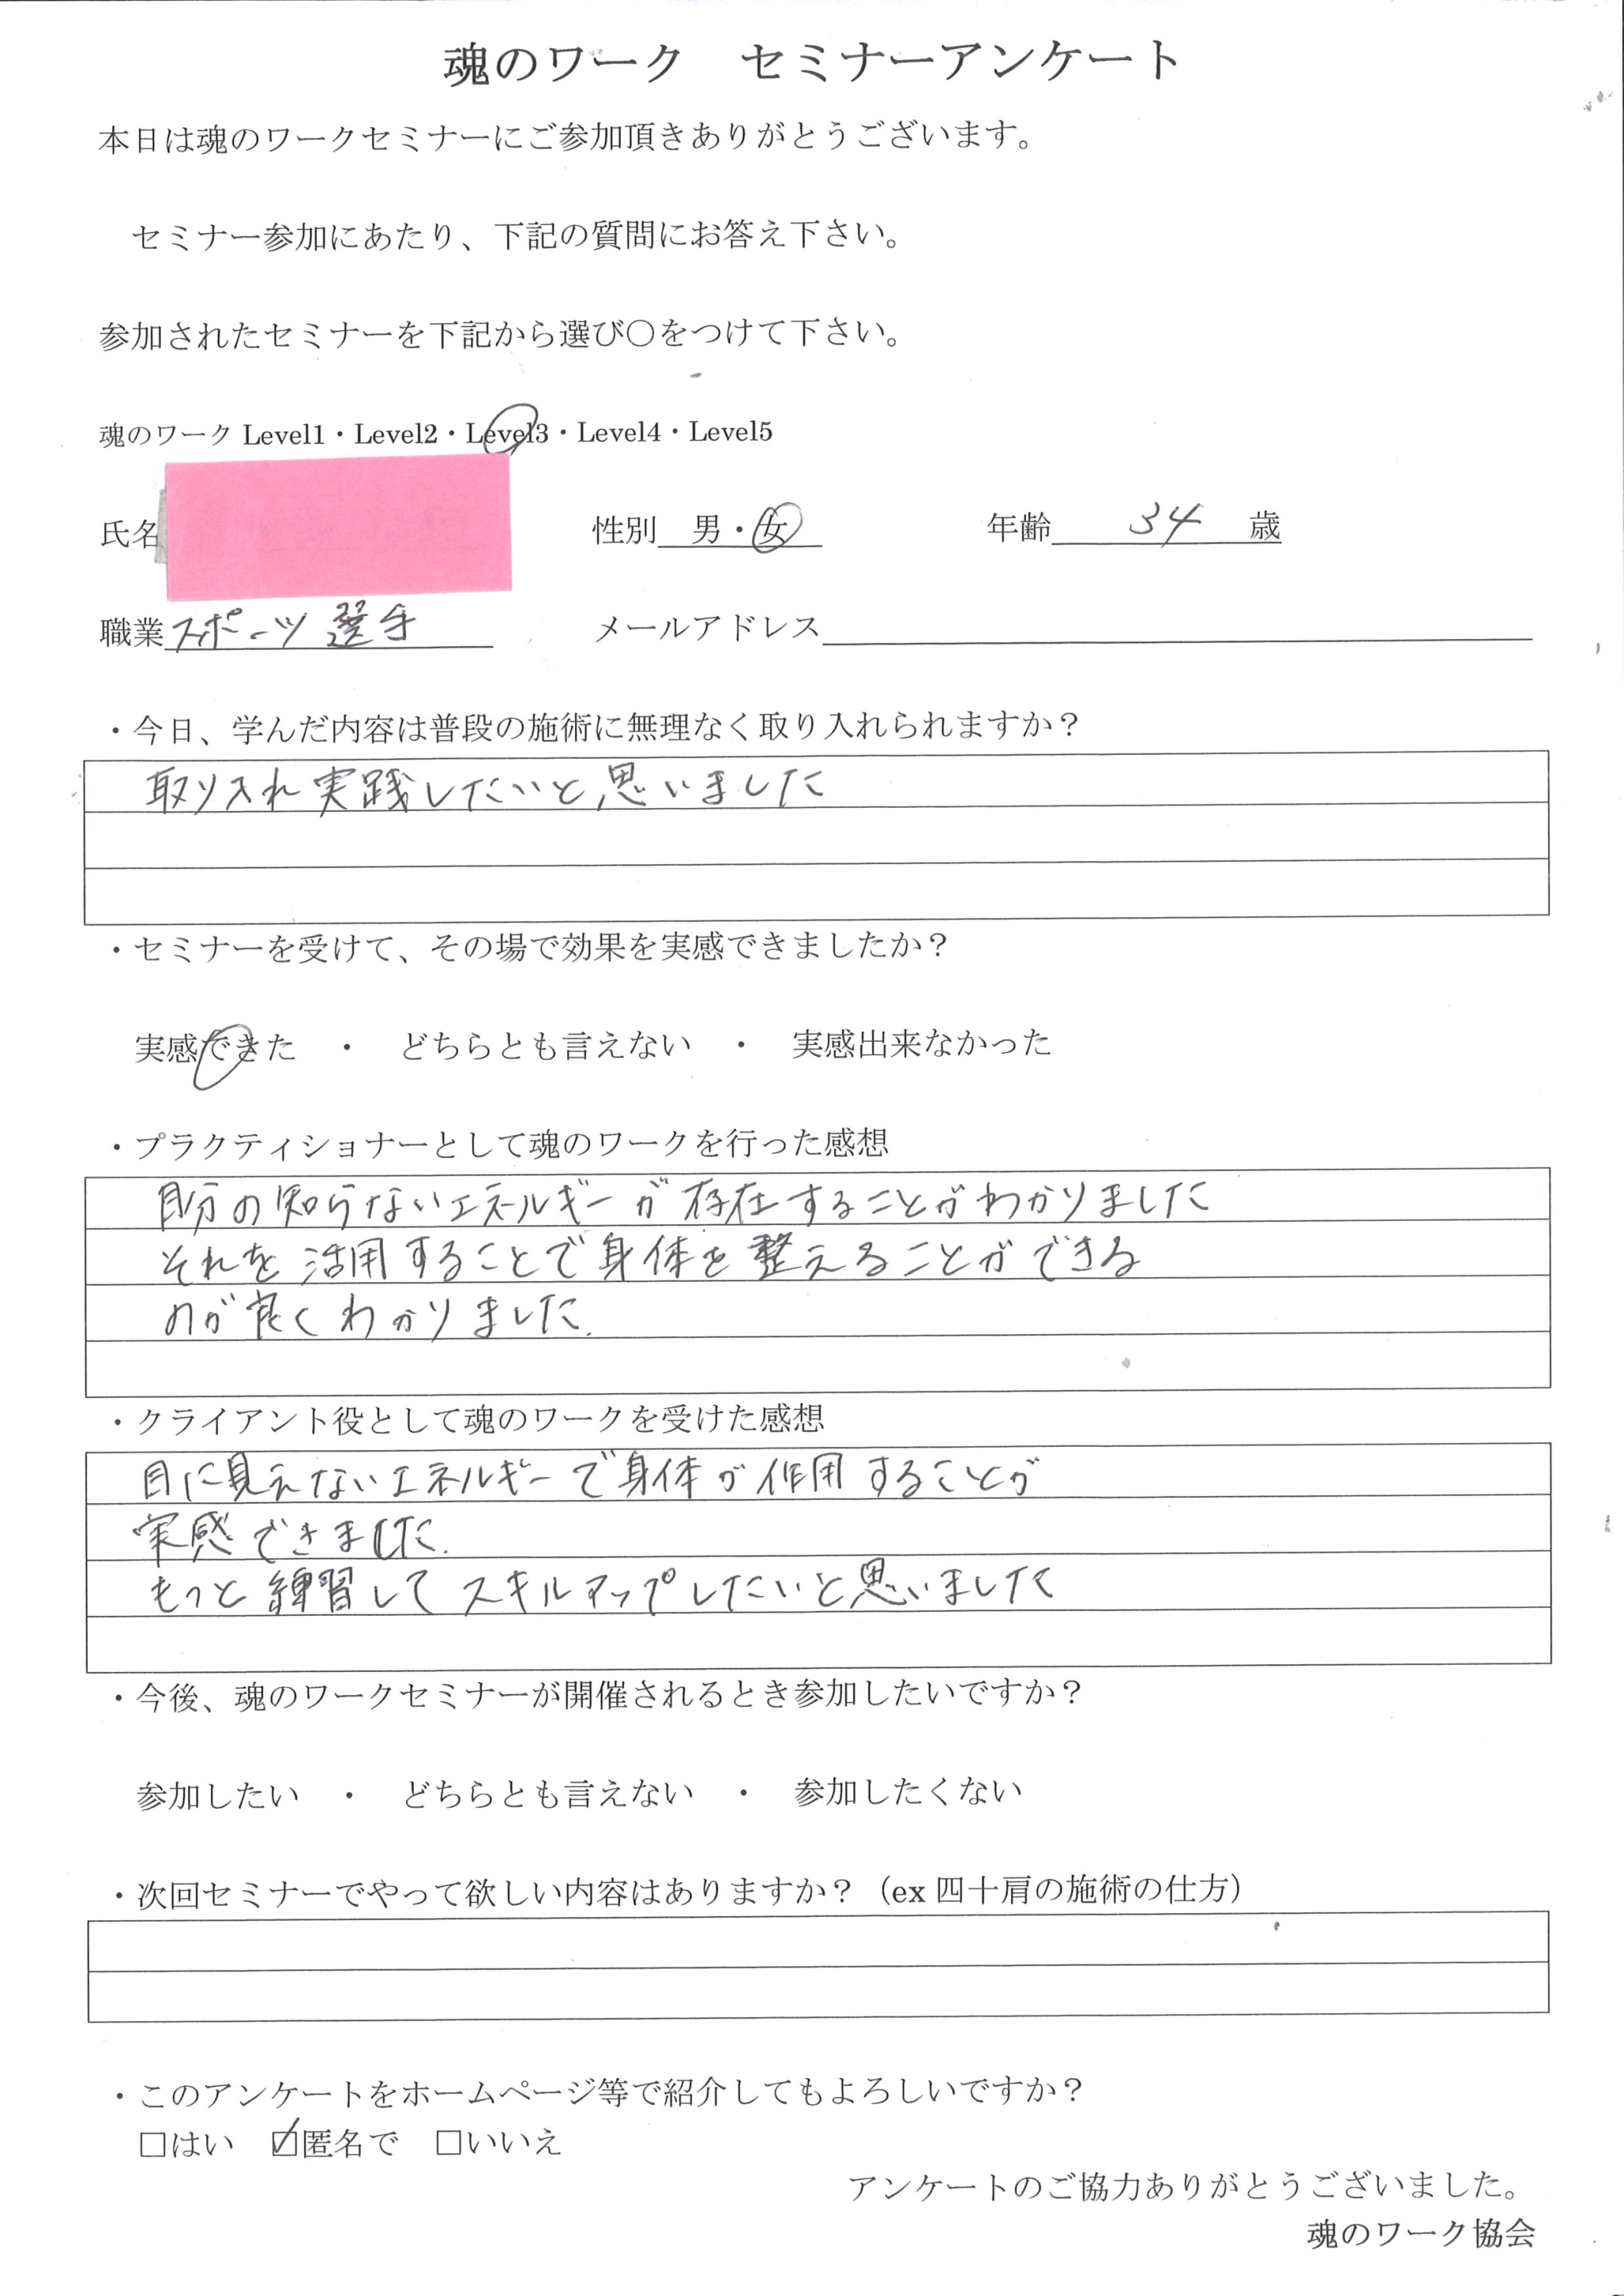 魂のワーク　セミナーアンケート
本日は魂のワークセミナーにご参加頂きありがとうございます。
セミナー参加にあたり、下記の質問にお答え下さい。
参加されたセミナーを下記から選び〇をつけて下さい。
魂のワーク Level1・Level2・Level3・Level4・Level5
氏名　性別　男・女　年齢　34　歳
職業 スポーツ選手　メールアドレス
・今日、学んだ内容は普段の施術に無理なく取り入れられますか？
取り入れ実践したいと思いました
・セミナーを受けて、その場で効果を実感できましたか？
実感できた　・　どちらとも言えない　・　実感出来なかった
・プラクティショナーとして魂のワークを行った感想
自分の知らないエネルギーが存在することがわかりました
それを活用することで身体を整えることができる
のが良くわかりました.
・クライアント役として魂のワークを受けた感想
目に見えないエネルギーで身体が作用することが
実感できました.
もっと練習してスキルアップしたいと思いました
・今後、魂のワークセミナーが開催されるとき参加したいですか？
参加したい　・　どちらとも言えない　・　参加したくない
・次回セミナーでやって欲しい内容はありますか？（ex 四十肩の施術の仕方）
・このアンケートをホームページ等で紹介してもよろしいですか？
□はい　☑匿名で　□いいえ
アンケートのご協力ありがとうございました。
魂のワーク協会